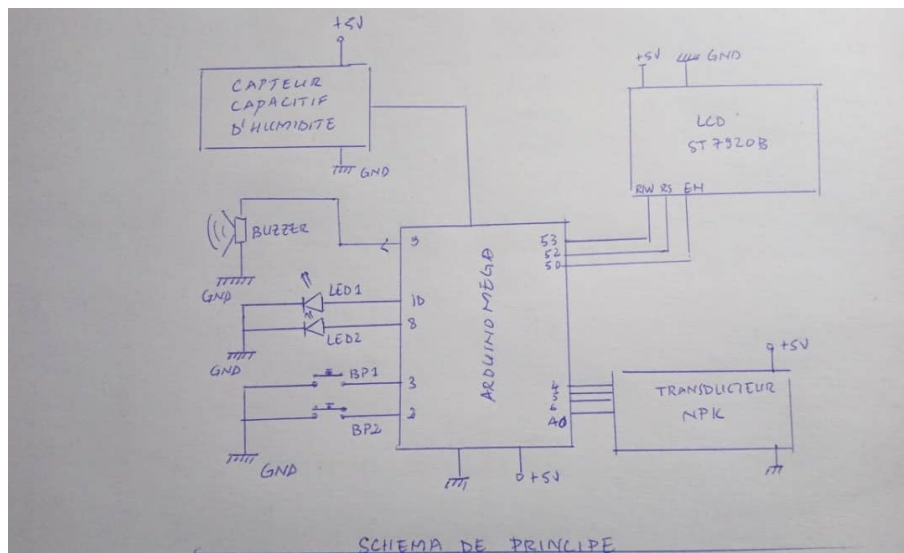 +5V
CAPTEUR
CAPACITIF
D'HUMIDITE
GND
+5V
GND
LCD
ST7920B
R/W RS EN
BUZZER
GND
9
53
52
50
LED1
10
LED2
8
GND
BP1
3
BP2
2
GND
ARDUINO MEGA
4
5
6
A0
+5V
TRANSDUCTEUR
NPK
+5V
SCHEMA DE PRINCIPE